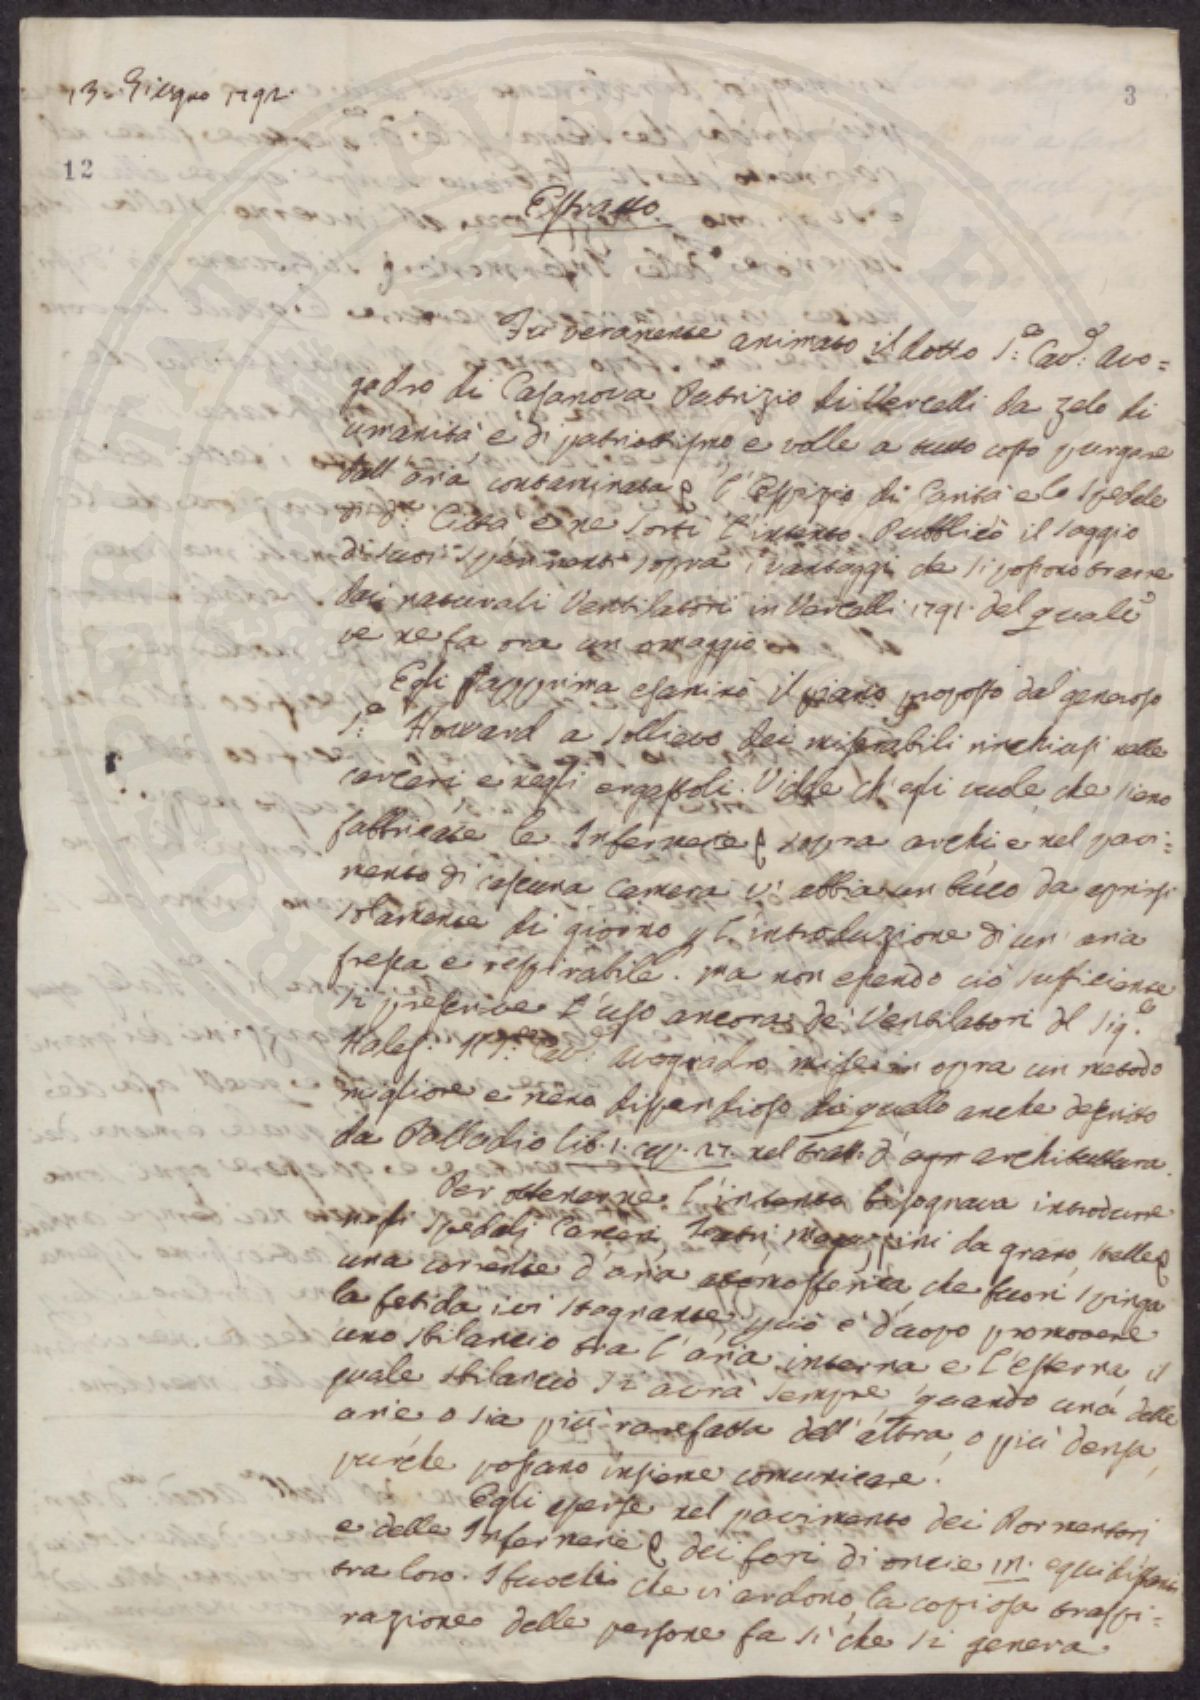 13. Giugno 1792.
3
12
Estratto.
Fu veramente animato il dotto S.r Cav.e Avo=
gadro di Casanova Patrizio di Vercelli da zelo di
umanità, e di patriottismo, e volle a tutto costo purgare
dall'aria contaminata l'Ospizio di Carità e lo Spedale
di d.a Città e ne sortì l'intento. Pubblicò il saggio
di suoi sperimenti sopra i vantaggi che si possono trarre
dai naturali Ventilatori in Vercelli 1791. del quale
ve ne fa ora un omaggio.
Egli dapprima esaminò il piano proposto dal generoso
S.r Howard a sollievo dei miserabili rinchiusi nelle
carceri e negli ergastoli. Vidde ch'essi vuole, che sieno
fabbricate le Infermerie sopra archi e nel pavi=
mento di cascuna camera vi abbia un buco da aprirsi
solamente di giorno p l'introduzione d'un'aria
fresca e respirabile. ma non essendo ciò sufficiente
si prescrive l'uso ancora de' Ventilatori del Sig.r
Hales. Il S.r Cav.e Avogadro mise in opra un metodo
migliore e meno dispendioso di quello anche descritto
da Palladio lib. 1. cap. 27. nel tratt. d'agr architettura.
Per ottenerne l'intento bisognava introdurre
negli Spedali, Carceri, Teatri, Magazzini da grano, stalle
una corrente d'aria atmosferica, che fuori spinga
la fetida ivi stagnante, p ciò è d'uopo promovere
uno sbilancio tra l'aria interna e l'esterna, il
quale sbilancio si avrà sempre, quando una delle
arie o sia più rarefatta dell'altra, o più densa,
purchè possano insieme comunicare.
Egli aperse nel pavimento dei Dormentorj
e delle Infermerie dei fori di oncie III. equidistanti
tra loro. I fuochi che vi ardono, la copiosa traspi=
razione delle persone fa sì che si genera